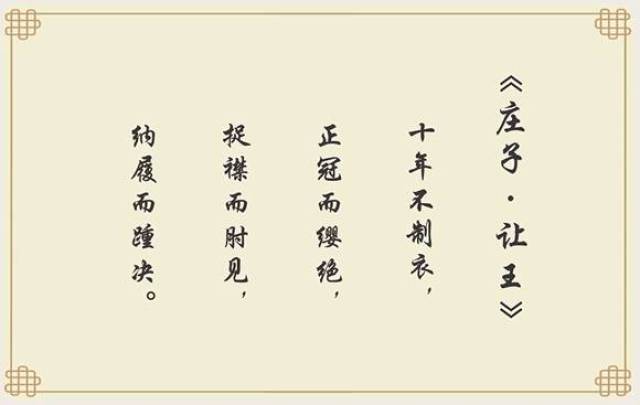 《庄子·让王》
十年不制衣，
正冠而缨绝，
捉襟而肘见，
纳履而踵决。